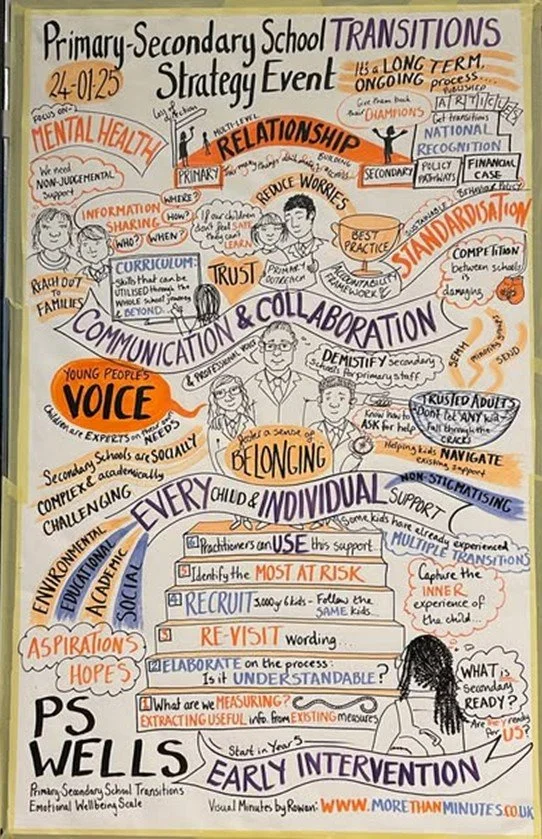 Primary-Secondary School TRANSITIONS
Strategy Event
24-01-25
It's a LONG TERM,
ONGOING process....
FOCUS ON
MENTAL HEALTH
Loss of
direction
MULTI-LEVEL
RELATIONSHIP
BUILDING
PRIMARY
SECONDARY
Give them back
their CHAMPIONS
PUBLISHED
ARTICLES
Get transitions
NATIONAL
RECOGNITION
POLICY
PATHWAYS
FINANCIAL
CASE
BEHAVIOUR POLICY
We need
NON-JUDGEMENTAL
support
INFORMATION
SHARING
WHERE?
HOW?
WHO?
WHEN?
REACH OUT
TO
FAMILIES
REDUCE WORRIES
If our children
don't feel SAFE
they can't
LEARN
BEST
PRACTICE
SUSTAINABLE
STANDARDISATION
COMPETITION
between schools
is
damaging
CURRICULUM:
Skills that can be
UTILISED through the
WHOLE school journey
& BEYOND.
TRUST
PRIMARY
OUTREACH
ACCOUNTABILITY
FRAMEWORK?
COMMUNICATION & COLLABORATION
YOUNG PEOPLE'S
VOICE
& PROFESSIONAL VOICE
Children are EXPERTS on their own
NEEDS
DEMISTIFY secondary
schools for primary staff
SEMH
minority groups
SEND
Know how to
ASK for help
TRUSTED ADULTS
Don't let ANY kid
fall through the
CRACKS
Foster a sense of
BELONGING
Helping kids NAVIGATE
existing support
Secondary Schools are SOCIALLY
COMPLEX & academically
CHALLENGING
EVERY CHILD & INDIVIDUAL SUPPORT
NON-STIGMATISING
ENVIRONMENTAL
EDUCATIONAL
ACADEMIC
SOCIAL
Some kids have already experienced
MULTIPLE TRANSITIONS
6 Practitioners can USE this support...
5 Identify the MOST AT RISK
4 RECRUIT 3,000 yr 6 kids - Follow the
SAME kids...
3 RE-VISIT wording...
2 ELABORATE on the process:
Is it UNDERSTANDABLE?
1 What are we MEASURING?
EXTRACTING USEFUL info. from EXISTING measures
Capture the
INNER
experience of
the child...
ASPIRATIONS
HOPES
WHAT is
secondary
READY?
Are they ready
for US?
PS
WELLS
Primary-Secondary School Transitions
Emotional Wellbeing Scale
Start in Year 5
EARLY INTERVENTION
Visual Minutes by Rowan: WWW.MORETHANMINUTES.CO.UK